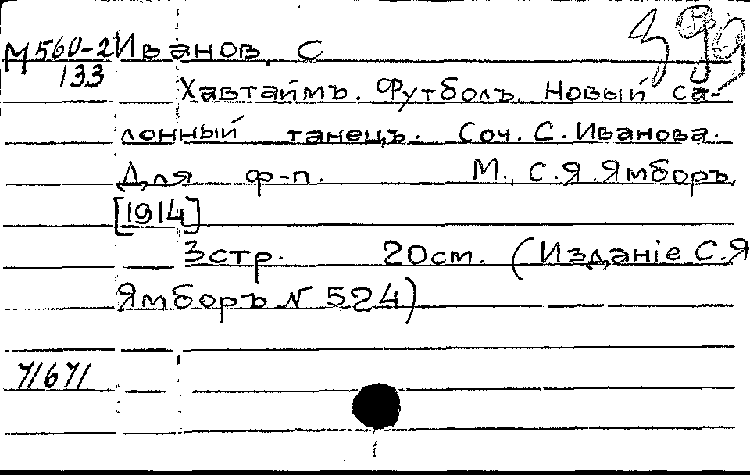 М 560-2 Иванов, С
133
Хавтаймъ. Футболъ. Новый са-
лонный танецъ. Соч. С. Иванова.
Для ф-п. М., С.Я. Ямборъ,
[1914]
3 стр. 20 см. (Изданіе С.Я
Ямборъ N 524)
71671